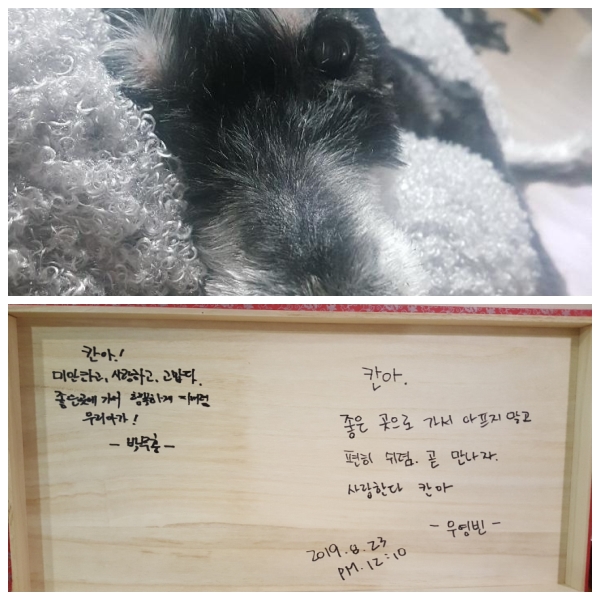 칸아!
미안하고, 사랑하고, 고맙다.
좋은곳에 가서 행복하게 지내렴
우리아가!
칸아.
좋은 곳으로 가서 아프지 말고
편히 쉬렴. 곧 만나자.
사랑한다 칸아
- 우영빈 -
2019.8.23
PM.12:10